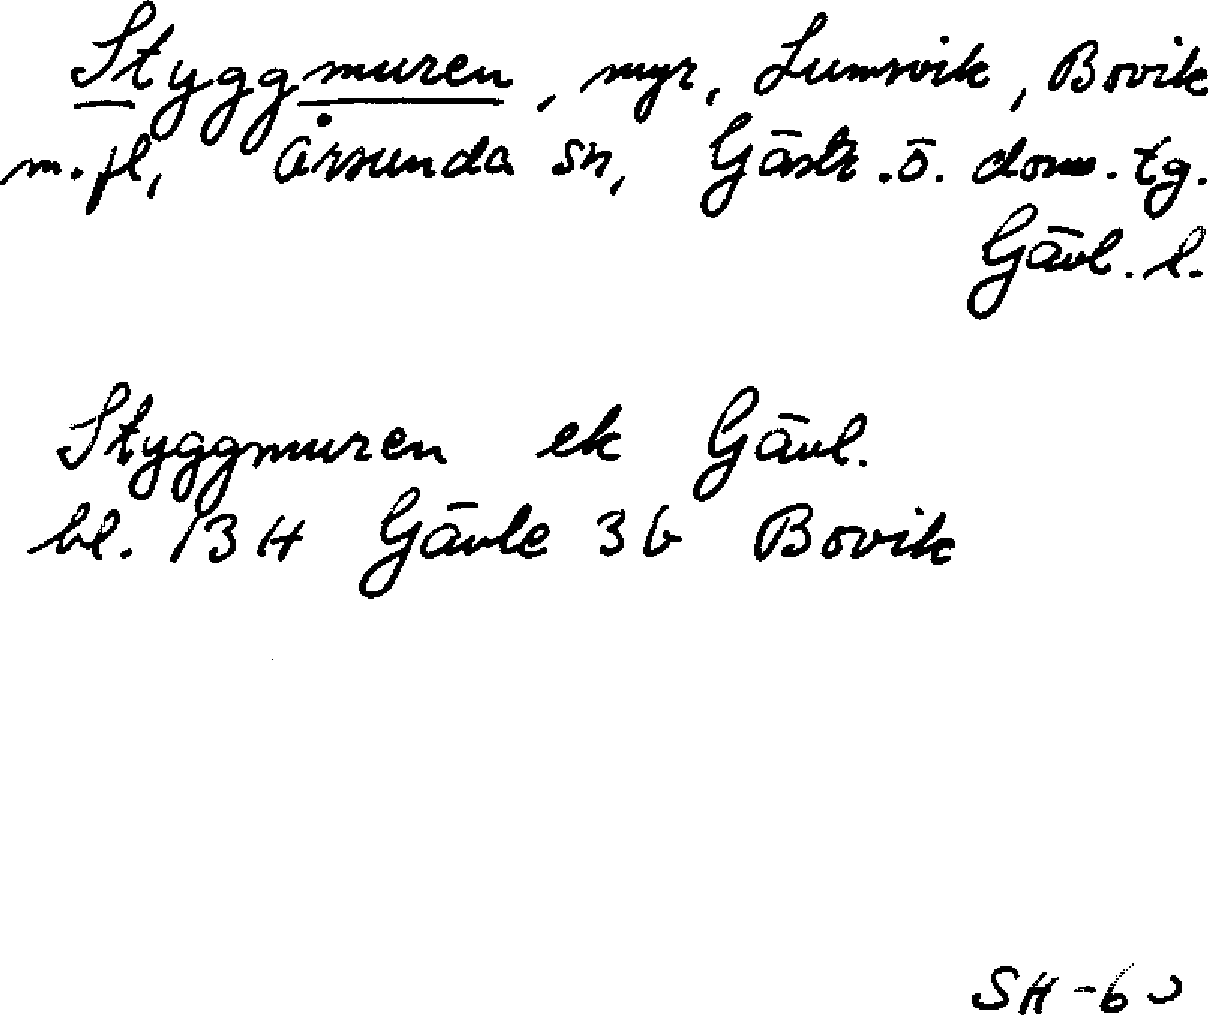 Styggmuren, myr, Lumsvik, Bovik
m. fl, Årsunda sn, Gästr. ö. doms. tg.
Gävl. l.
Styggmuren ek Gävl.
bl. 13 H Gävle 3 b Bovik
SH-60